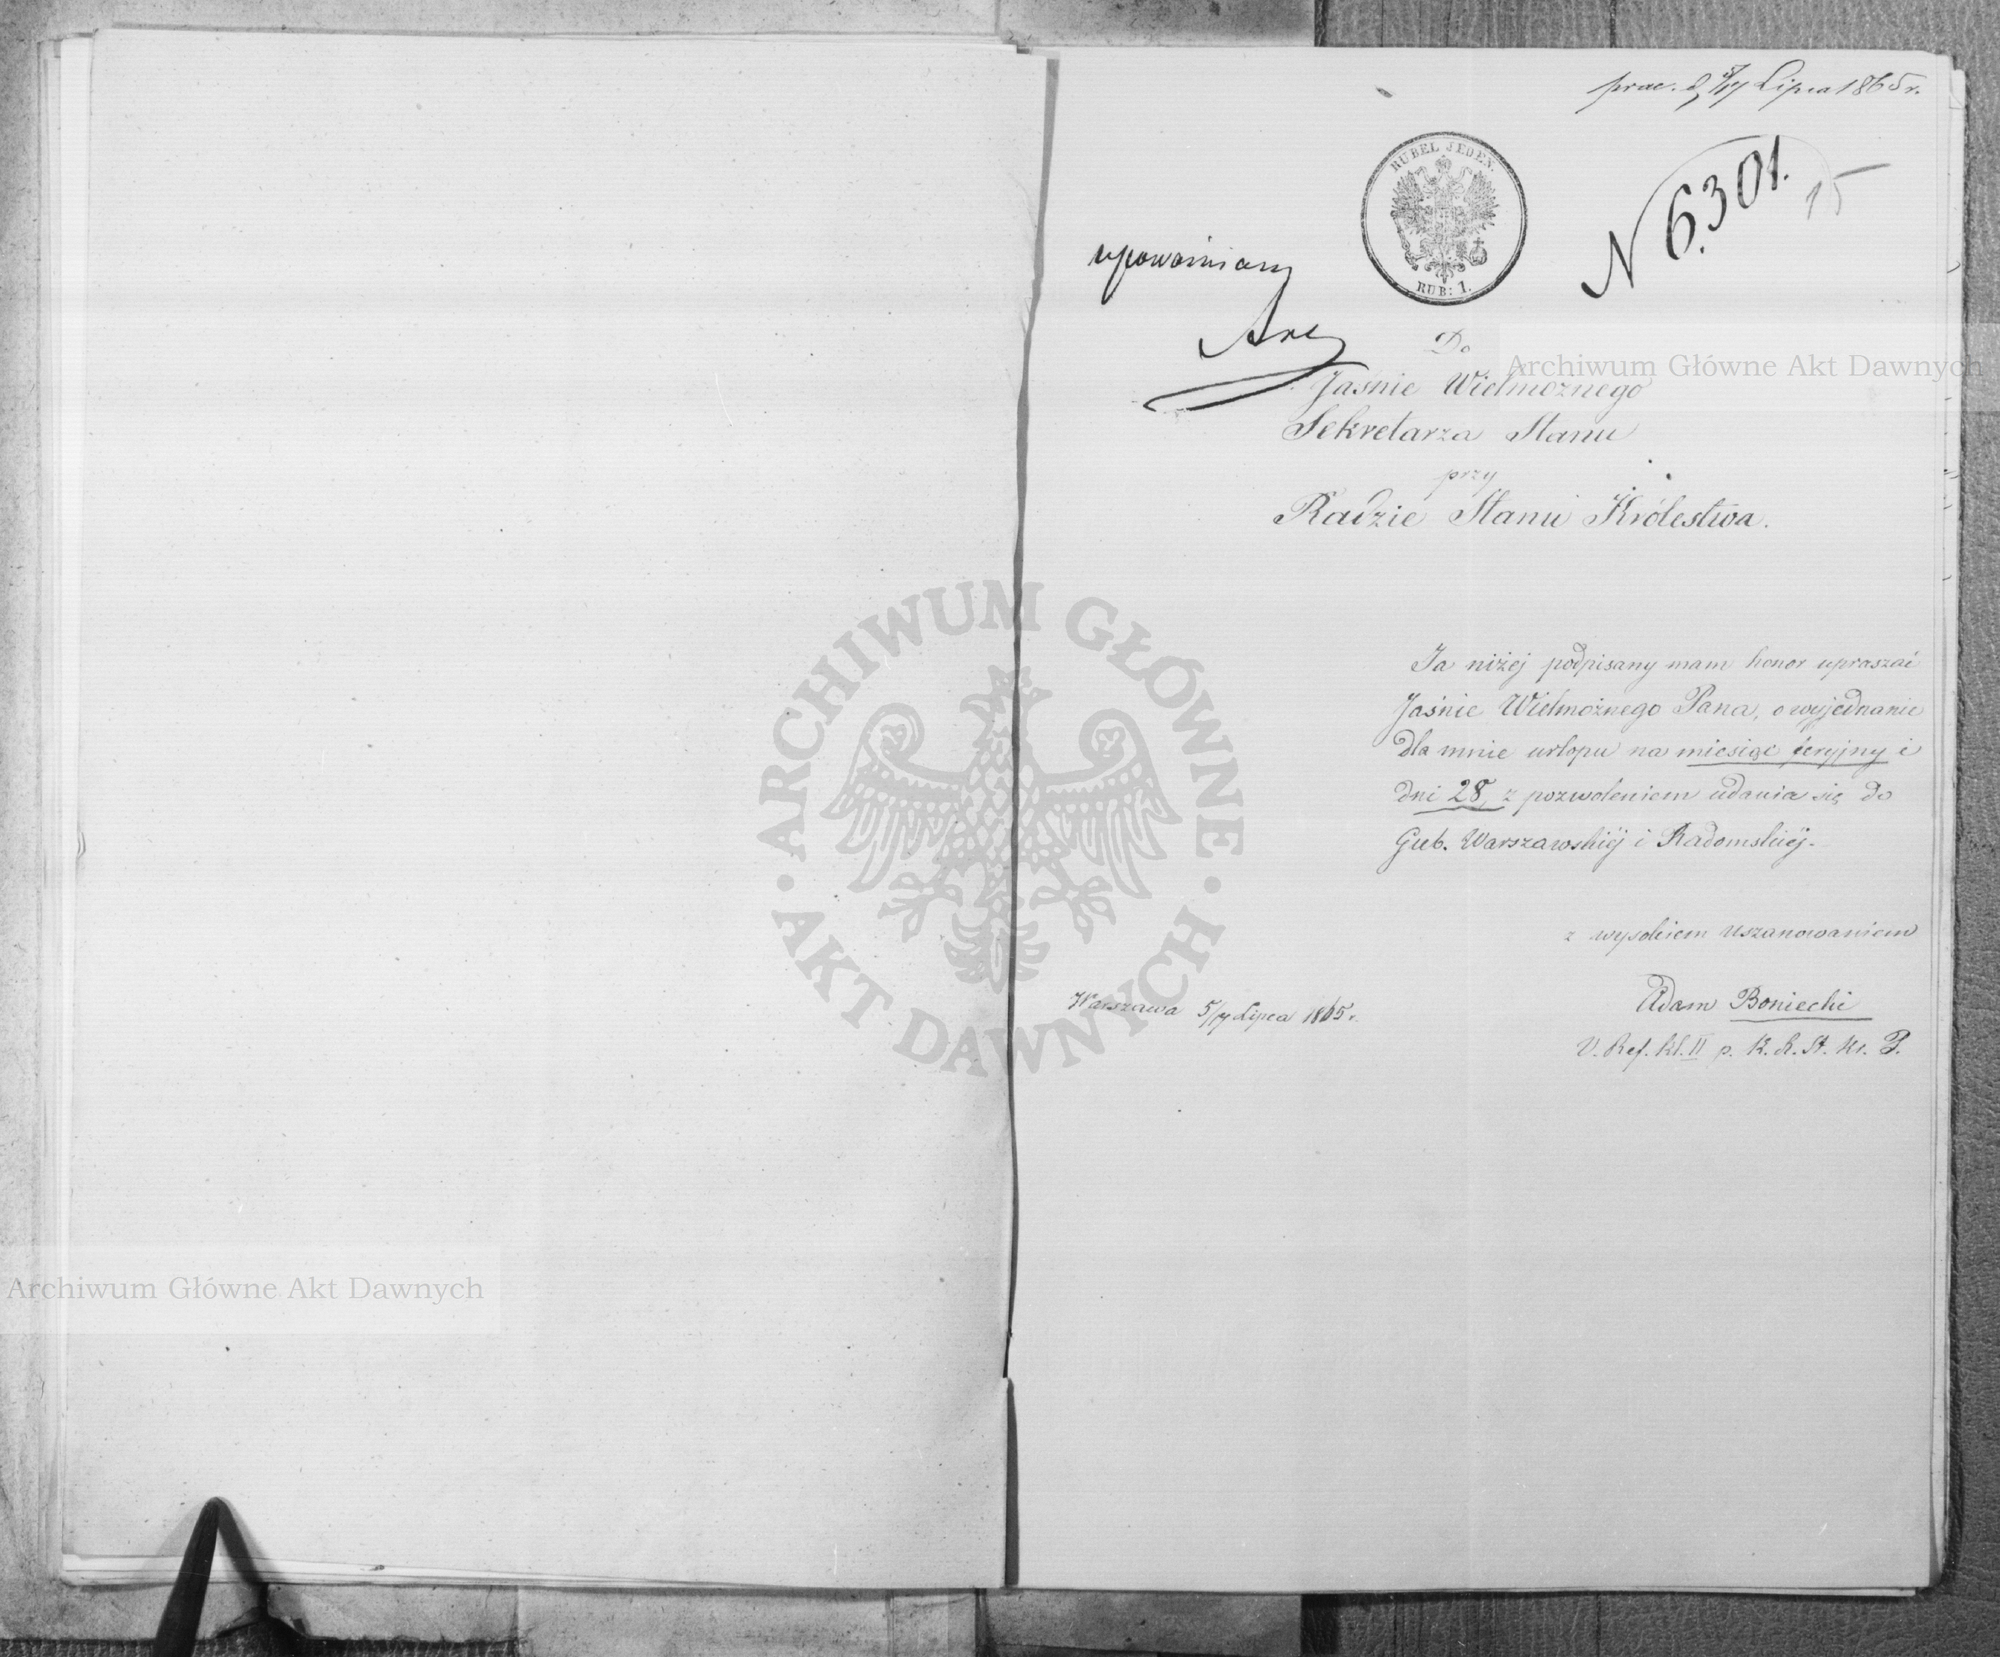 prac. d. 5/17 Lipca 1865 r.
RUBEL JEDEN.
RUB: 1.
N 6301.
15
upoważniany
Do
Jaśnie Wielmożnego
Sekretarza Stanu
przy
Radzie Stanu Królestwa.
Ja niżej podpisany mam honor upraszać
Jaśnie Wielmożnego Pana, o wyjednanie
dla mnie urlopu na miesiąc feryjny i
dni 28, z pozwoleniem udania się do
Gub. Warszawskiéj i Radomskiéj.
z wysokiem uszanowaniem
Warszawa 5/17 Lipca 1865 r.
Adam Boniecki
U. Ref. kl. II p. K. R. St. Kr. P.
Archiwum Główne Akt Dawnych
ARCHIWUM GŁÓWNE · AKT DAWNYCH ·
Archiwum Główne Akt Dawnych